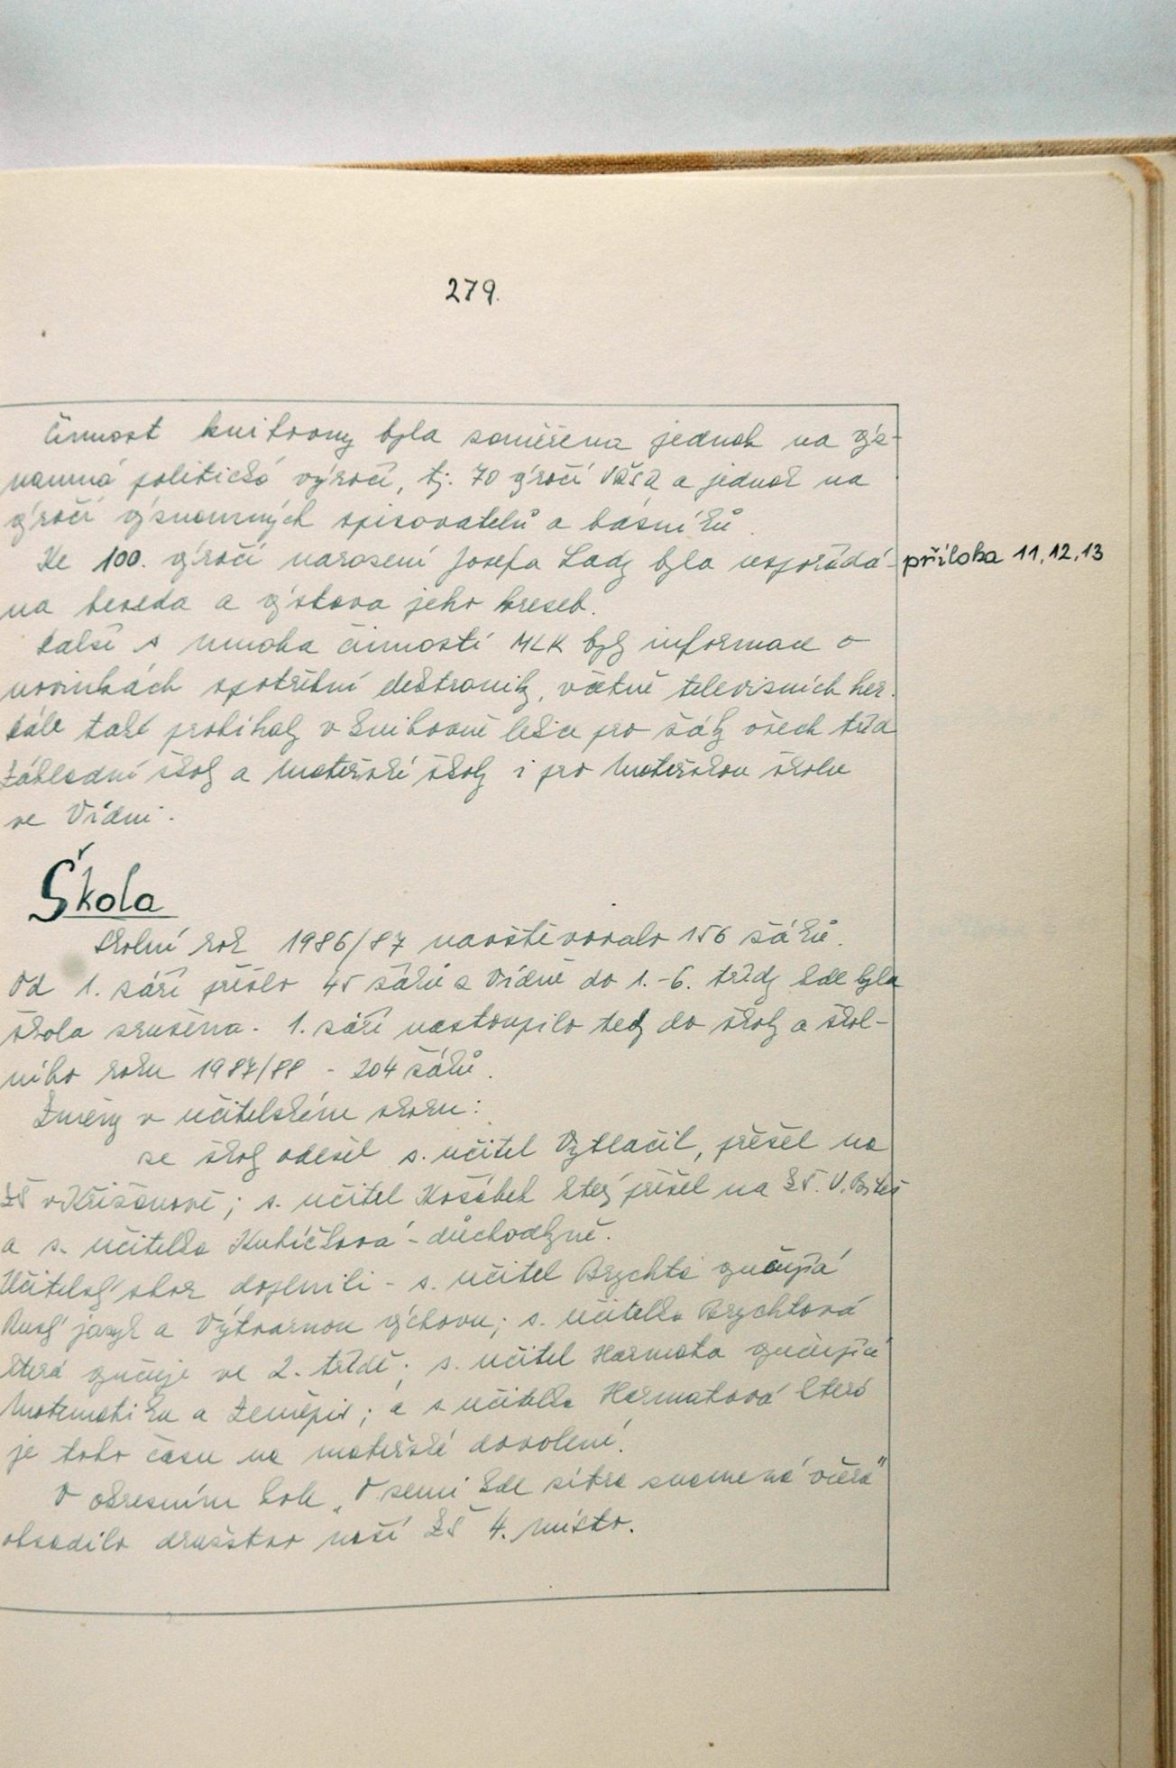 279.
Činnost knihovny byla zaměřena jednak na výz-
namná politická výročí, tj. 70 výročí VŘSR a jednak na
výročí významných spisovatelů a básníků.
Ke 100. výročí narození Josefa Lady byla uspořádá-
příloha 11, 12, 13
na beseda a výstava jeho kreseb.
Další z mnoha činností MLK byly informace o
novinkách spotřební elektroniky, včetně televizních her.
Dále také probíhaly v knihovně lekce pro žáky všech tříd
Základní školy a Mateřské školy i pro Mateřskou školu
ve Vídni.
Škola
Školní rok 1986/87 navštěvovalo 156 žáků.
Od 1. září přešlo 45 žáků z Vídně do 1.-6. třídy kde byla
škola zrušena. 1. září nastoupilo tedy do školy a škol-
ního roku 1987/88 - 204 žáků.
Změny v učitelském sboru:
ze školy odešel s. učitel Vytlačil, přešel na
ZŠ v Křižanově; s. učitel Košábek který přešel na ZŠ. V. Bíteš
a s. učitelka Kubíčková - důchodkyně.
Učitelský sbor doplnili - s. učitel Brychta vyučující
Ruský jazyk a Výtvarnou výchovu; s. učitelka Brychtová
která vyučuje ve 2. třídě; s. učitel Harmata vyučující
Matematiku a Zeměpis; a s učitelka Harmatová která
je toho času na mateřské dovolené.
V okresním kole „V zemi kde zítra znamená včera"
obsadilo družstvo naší ZŠ 4. místo.